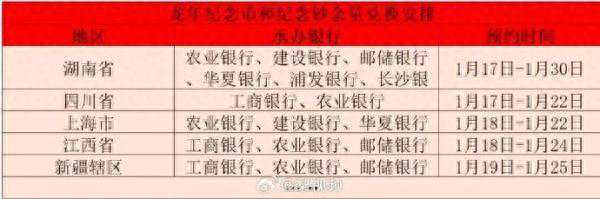 龙年纪念币和纪念钞余量兑换安排
地区 承办银行 预约时间
湖南省 农业银行、建设银行、邮储银行、华夏银行、浦发银行、长沙银 1月17日-1月30日
四川省 工商银行、农业银行 1月17日-1月22日
上海市 农业银行、建设银行、华夏银行 1月18日-1月22日
江西省 工商银行、农业银行、邮储银行 1月18日-1月24日
新疆辖区 工商银行、农业银行、邮储银行 1月19日-1月25日
......